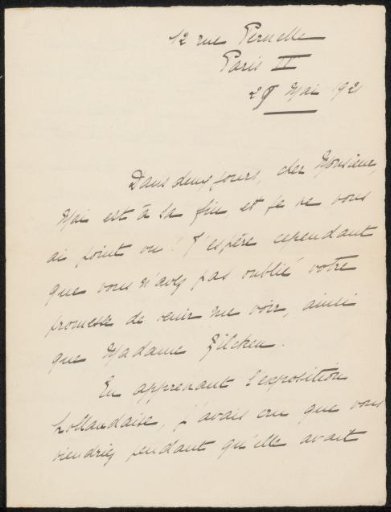 12 rue Pernelle
Paris IV
29 Mai 1921
Dans deux jours, cher Monsieur,
Mai est à sa fin et je ne vous
ai point vu ! J'espère cependant
que vous n'avez pas oublié votre
promesse de venir me voir, ainsi
que Madame Zilcken.
En apprenant l'exposition
hollandaise, j'avais cru que vous
viendriez pendant qu'elle avait